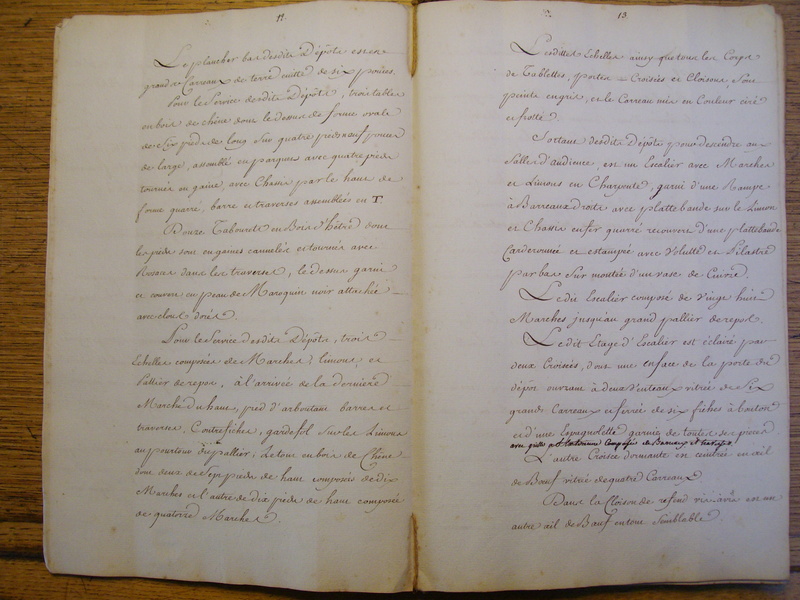 12
Le plancher bas desdits Dépôts est en
grands Carreaux de terre cuitte de six pouces.
Pour le Service desdits Dépôts, trois tables
en bois de chêne dont le dessus de forme ovale
de Six pieds de long Sur quatre pieds neuf pouces
de large, assemblé en parquet avec quatre pieds
tournés en gaine, avec Chassis par le haut de
forme quarré, barre et traverses assemblées en T.
Douze Tabourets en Bois d'hêtre dont
les pieds sont en gaines cannelés et tournés avec
Rosaces dans les traverses, le dessus garni
et couvert en peau de Maroquin noir attachée
avec clous dorés.
Pour le Service desdits Dépôts, trois
Echelles composées de Marches, limons, et
Pallier de repos, à l'arrivée de la dernière
Marche du haut, pied d'arboutant barres et
traverses, Contrefiches, gardefol sur les Limons
au pourtour du pallier; Le tout en bois de Chêne
dont deux de Sept pieds de haut composés de dix
Marches et l'autre de dix pieds de haut composée
de quatorze Marches.
13
Lesdittes Echelles ainsy que tous les Corps
de Tablettes, portes Croisées et Cloisons, Sont
peints en gris, et le Carreau mis en Couleur ciré
et frotté.
Sortant desdits Dépôts pour descendre aux
Salles d'audience, est un Escalier avec Marches
et Limons en Charpente, garni d'une Rampe
à Barreaux droits avec plattebande sur le Limon
et Chassis en fer quarré recouvert d'une plattebande
Carderonnée et estampée avec Volutte et Pilastre
par bas Sur montée d'un vase de Cuivre.
Ledit Escalier composé de Vingt huit
Marches jusqu'au grand pallier de repos.
Ledit Etage d'Escalier est éclairé par
deux Croisées, dont une en face de la porte du
dépôt ouvrant à deux Venteaux vitrée de Six
grands Carreaux et ferrée de six fiches à bouton
et d'une Espagnolette garnie de toutes ses pièces
avec grille à l'extérieur Composée de Barreaux et traverses
L'autre Croisée dormante et ceintrée en œil
de Bœuf vitrée de quatre Carreaux
Dans la cloison de refend vis à vis est un
autre œil de Bœuf en tout Semblable